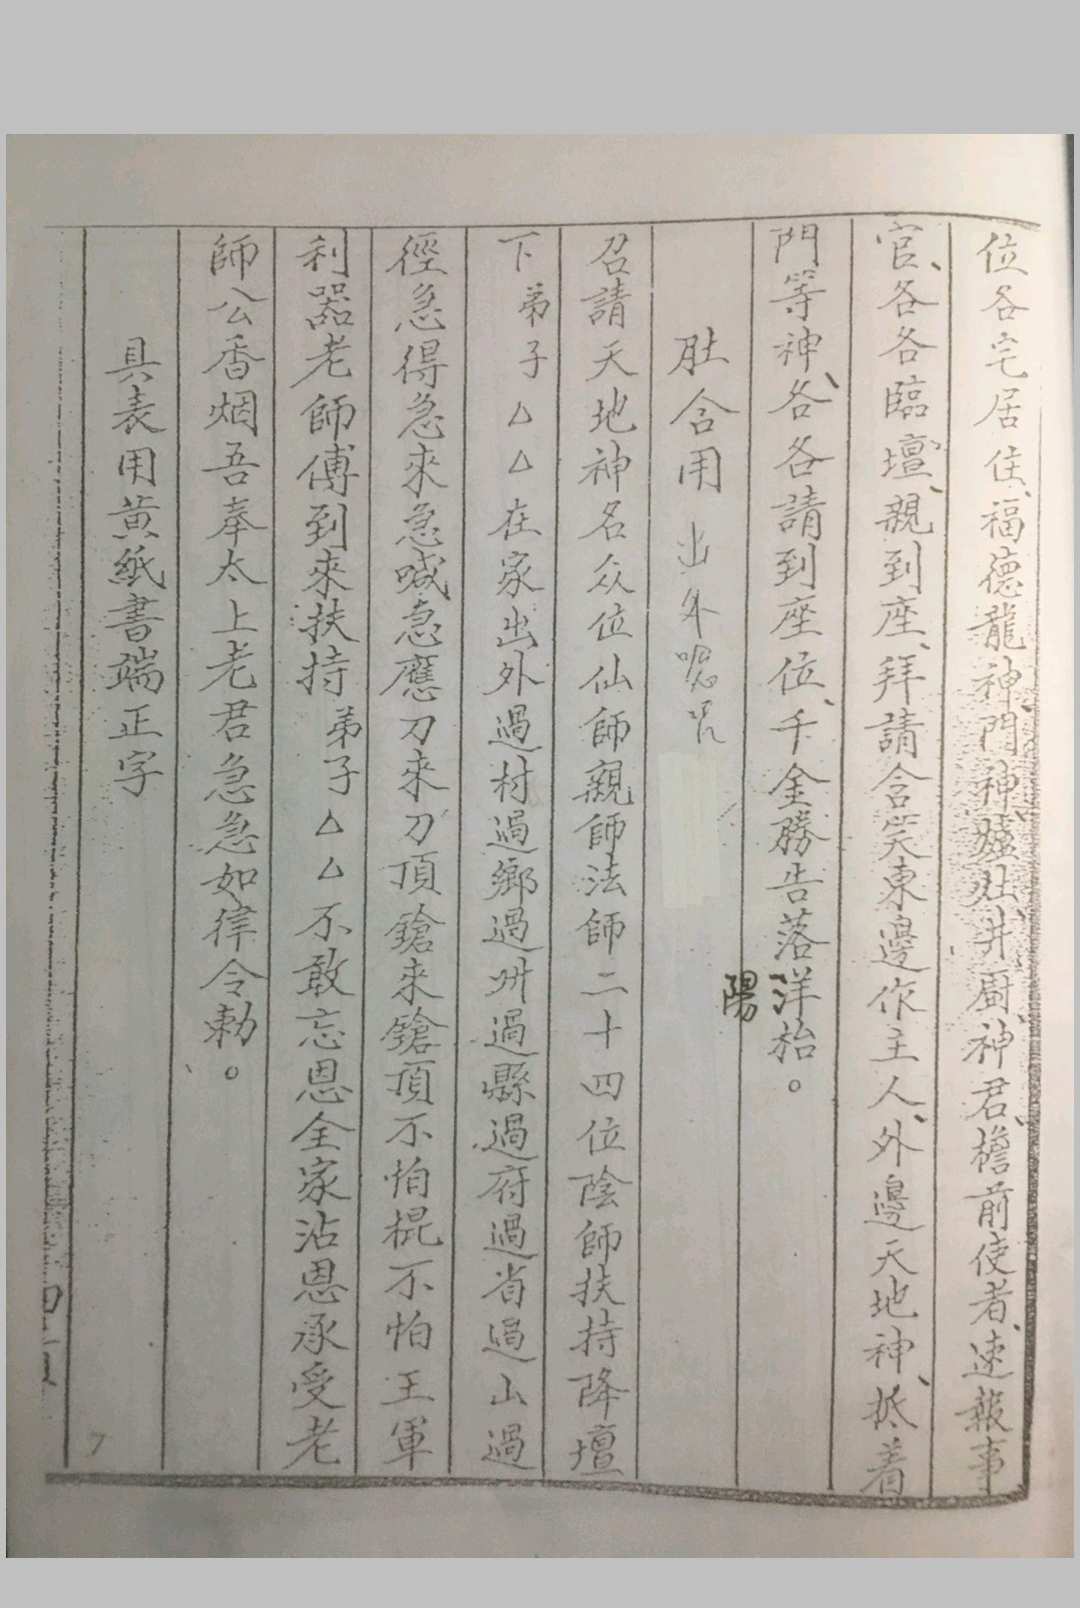 位各宅居住、福德龍神、門神、灶井廚神君、檐前使者、速報事
官、各各臨壇、親到座、拜請含笑東邊作主人、外邊天地神、抵着
門等神、各各請到座位、千金勝告落洋枱。
陽
肚含用 出外
召請天地神名众位仙師親師法師二十四位陰師扶持降壇
下弟子△△在家出外過村過鄉過州過縣過府過省過山過
徑急得急來急喊急應刀來刀頂鎗来鎗頂不怕棍不怕王軍
利器老師傅到來扶持弟子△△不敢忘恩全家沾恩承受老
師公香烟吾奉太上老君急急如律令勅。
具表用黄紙書端正字
7